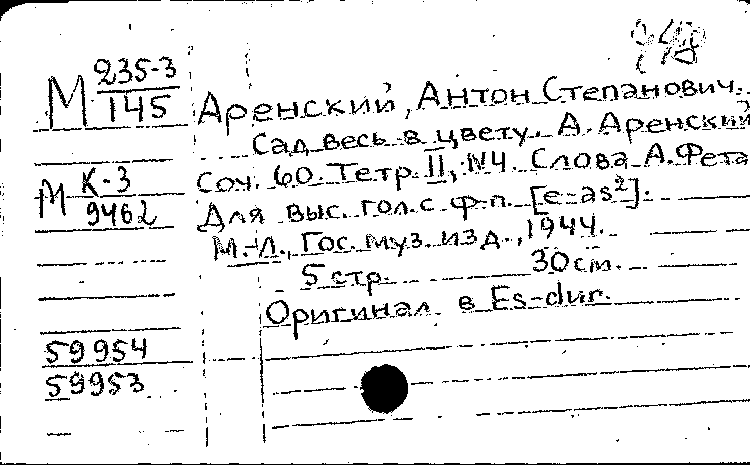 М 235-3/145
Аренский, Антон Степанович.
Сад весь в цвету. А. Аренский
М К-3/9462
Соч. 60. Тетр. II, N4. Слова А. Фета
Для выс. гол. с ф-п. [e-as²].
М.-Л., Гос. муз. изд., 1944.
5 стр. 30 см.
Оригинал в Es-dur.
59954
59953